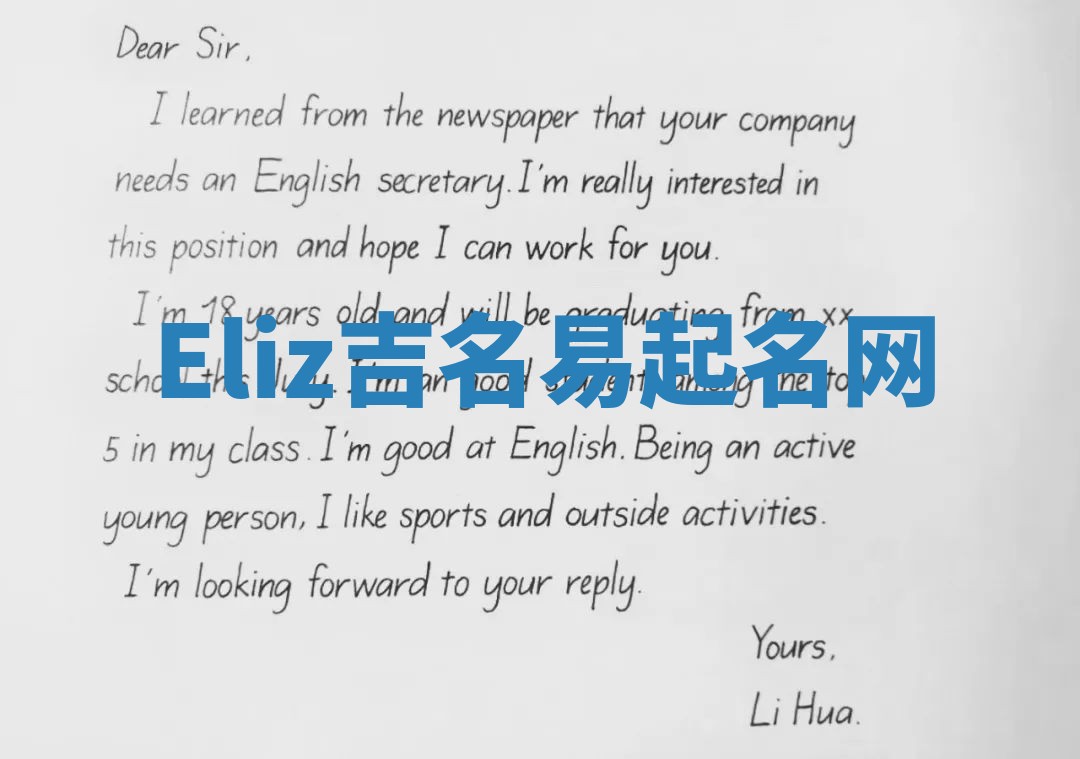 Dear Sir,
I learned from the newspaper that your company
needs an English secretary. I'm really interested in
this position and hope I can work for you.
I'm 18 years old and will be graduating from xx
Eliz吉名易起名网
school this July. I'm an good student among the top
5 in my class. I'm good at English. Being an active
young person, I like sports and outside activities.
I'm looking forward to your reply.
Yours,
Li Hua.